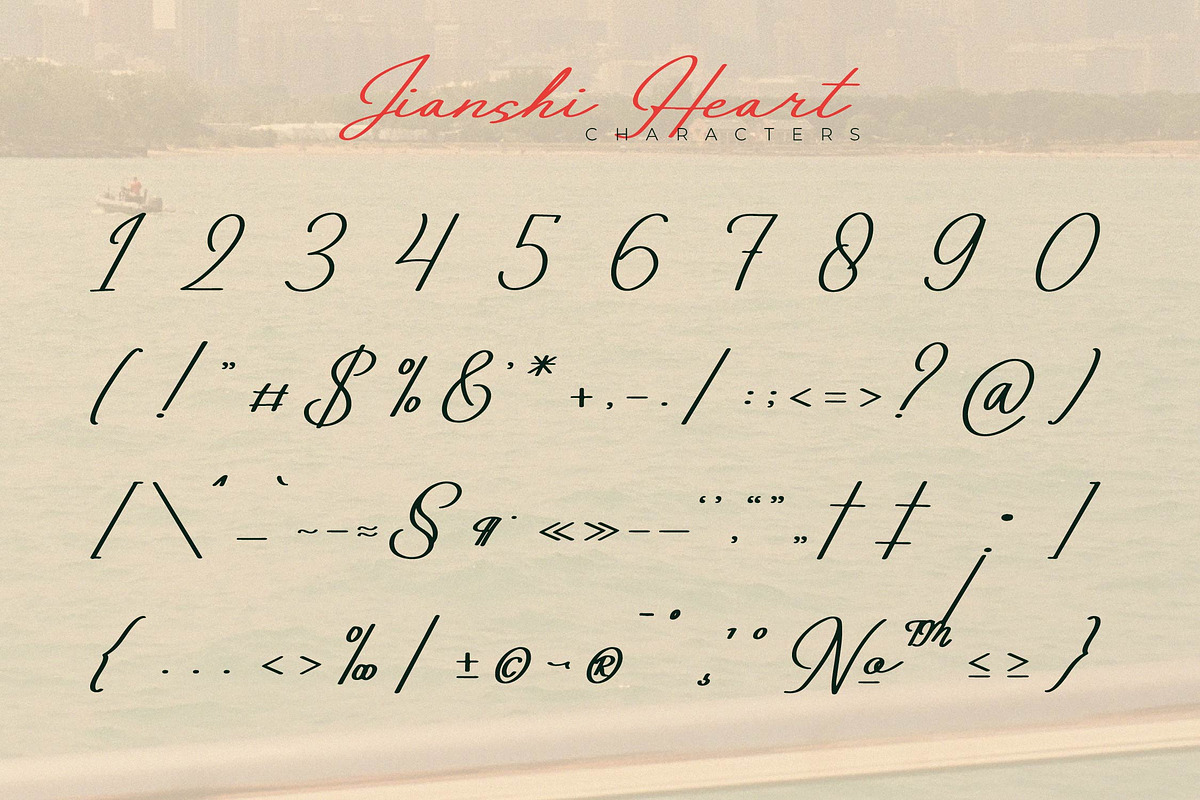 Jianshi Heart
CHARACTERS
1 2 3 4 5 6 7 8 9 0
( ! " # $ % & ' * + , - . / : ; < = > ? @ )
/ \ ^ _ ` ~ – ≈ § ¶ · « » – — ‘ ’ ‚ “ ” „ † ‡ • ¡ ]
{ . . . < > ‰ / ± © ¬ ® ¯ ° ¸ ¹ º № ™ ≤ ≥ }